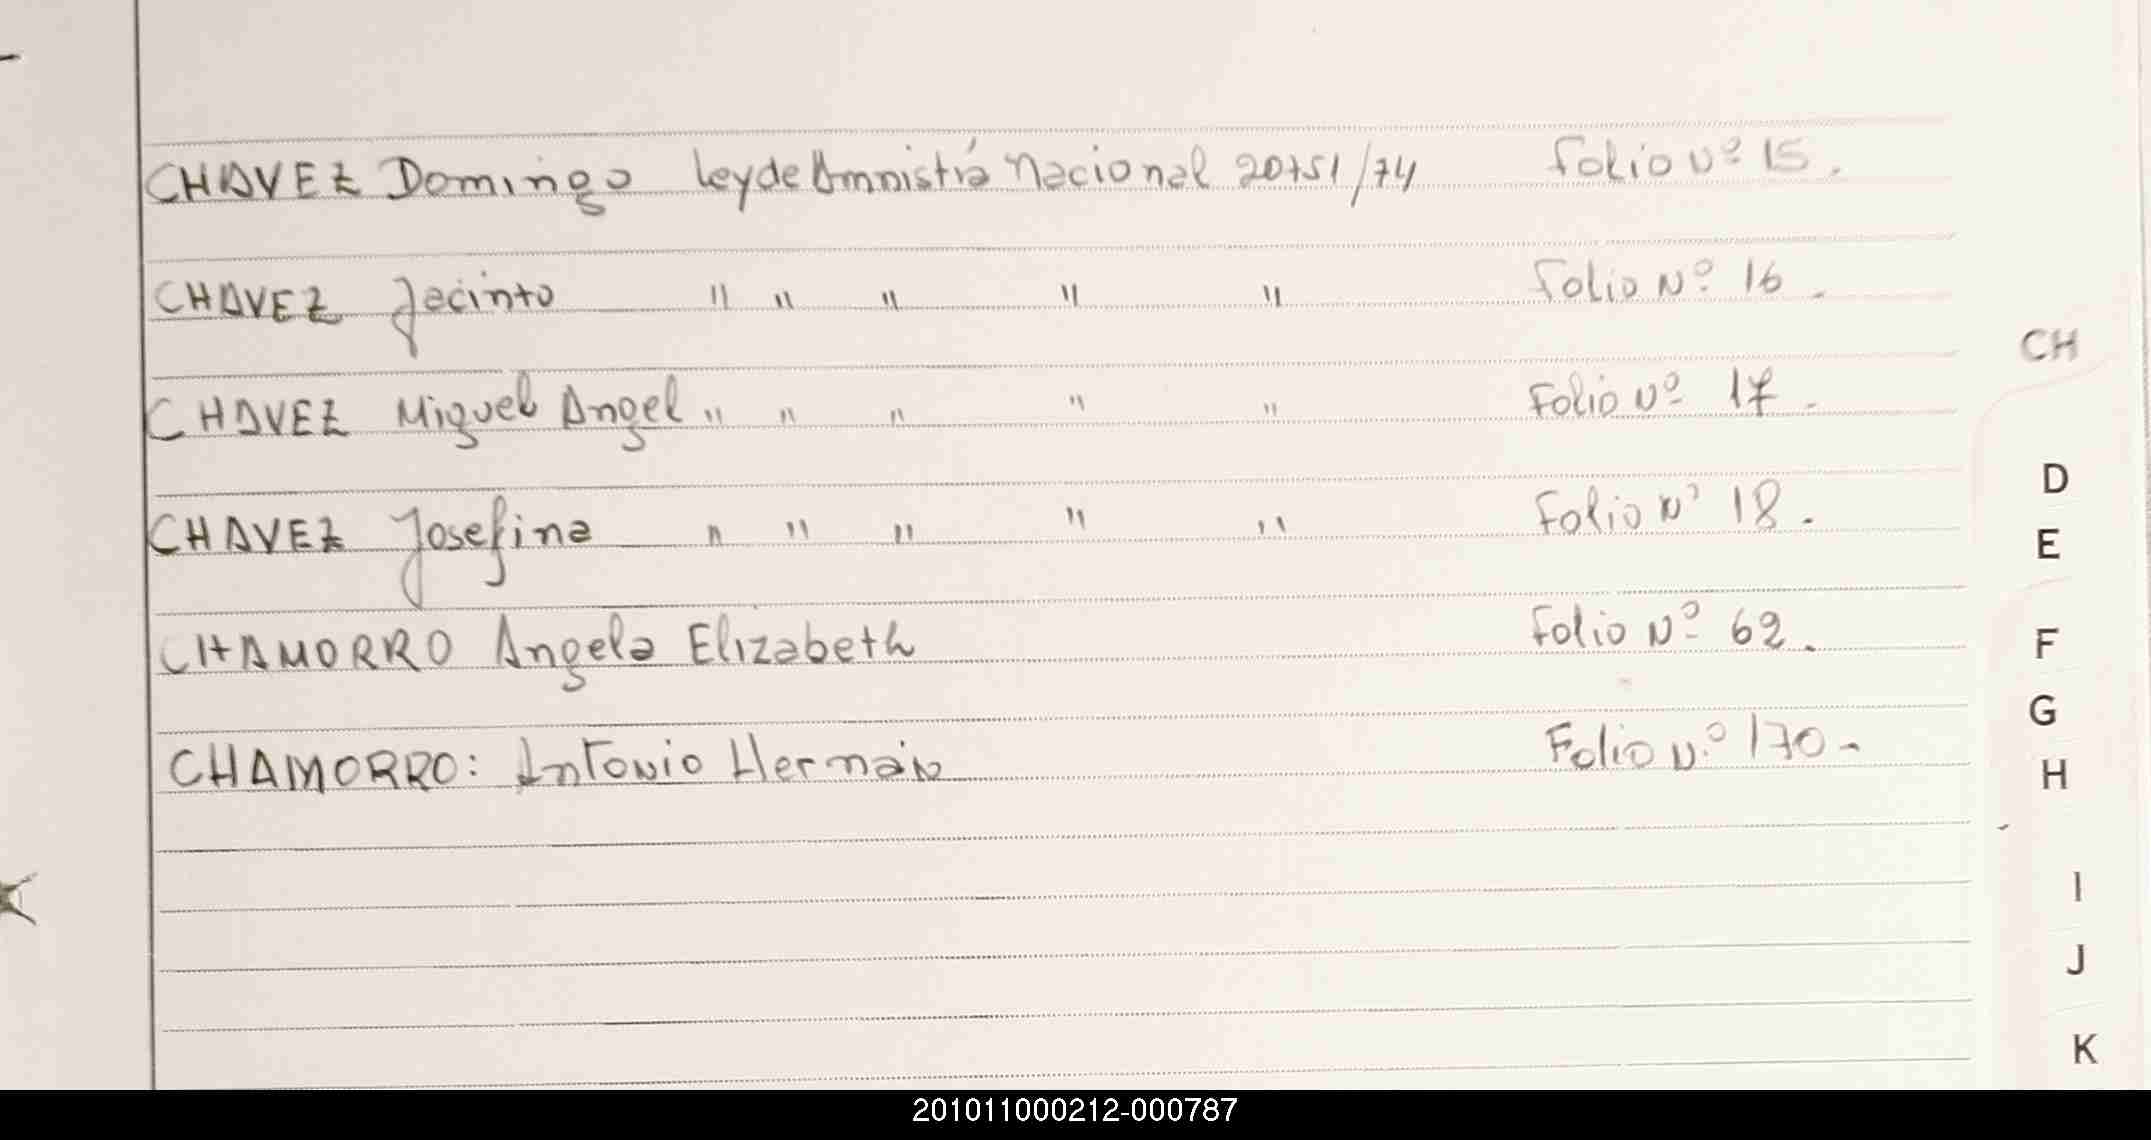 CHAVEZ Domingo ley de Amnistía Nacional 20751/74 Folio Nº 15.
CHAVEZ Jacinto " " " " " Folio Nº 16.
CHAVEZ Miguel Angel " " " " " Folio Nº 17.
CHAVEZ Josefina " " " " " Folio Nº 18.
CHAMORRO Angela Elizabeth Folio Nº 62.
CHAMORRO: Antonio Hernán Folio Nº 170-
CH
D
E
F
G
H
I
J
K
201011000212-000787